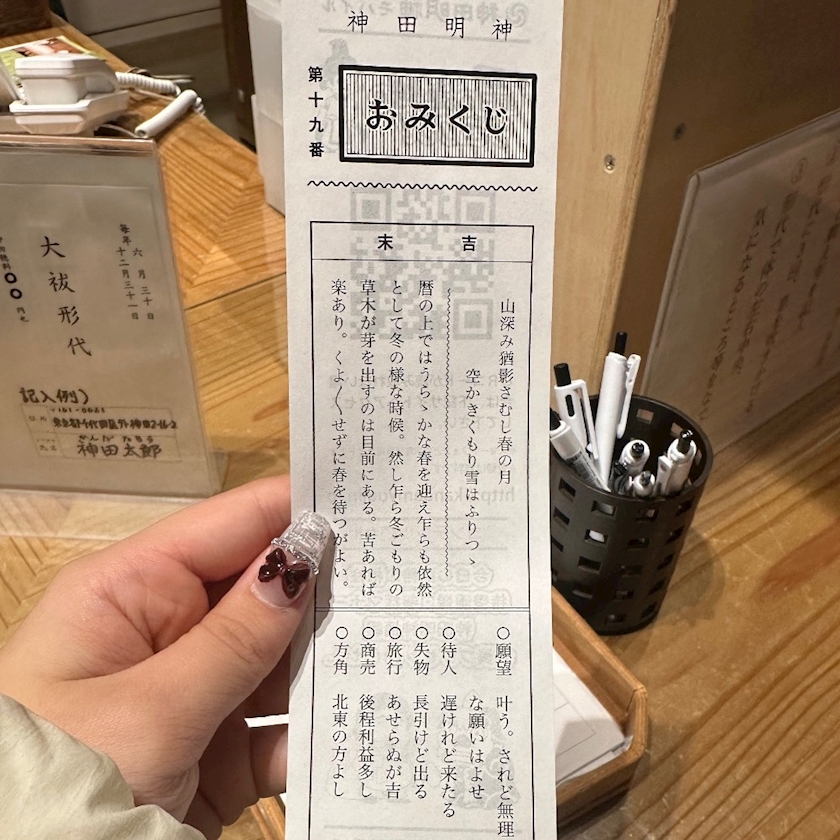 神田明神
第十九番
おみくじ
末吉
山深み猶影さむし春の月
空かきくもり雪はふりつゝ
暦の上ではうらゝかな春を迎え乍らも依然
として冬の様な時候。然し乍ら冬ごもりの
草木が芽を出すのは目前にある。苦あれば
楽あり。くよ〳〵せずに春を待つがよい。
○願望 叶う。されど無理
な願いはよせ
○待人 遅けれど来たる
○失物 長引けど出る
○旅行 あせらぬが吉
○商売 後程利益多し
○方角 北東の方よし
毎年 六月三十日
十二月三十一日
大祓形代
記入例)
〒101-0021
東京都千代田区外神田2-16-2
かんだ たろう
神田太郎